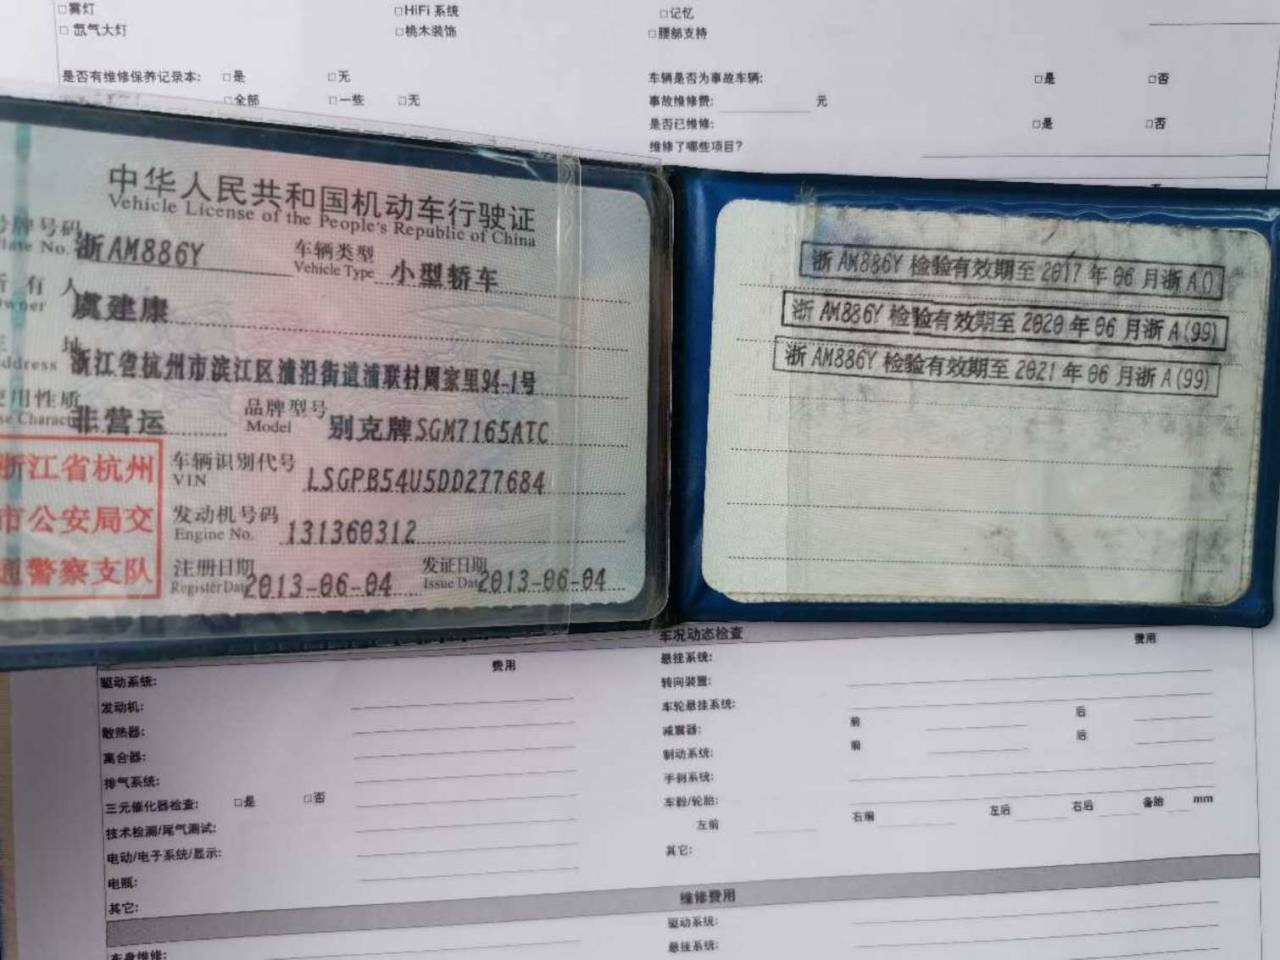 □雾灯 □HiFi 系统 □记忆
□氙气大灯 □桃木装饰 □腰部支持
是否有维修保养记录本: □是 □无 车辆是否为事故车辆: □是 □否
□全部 □一些 □无 事故维修费: 元
是否已维修: □是 □否
维修了哪些项目?
中华人民共和国机动车行驶证
Vehicle License of the People's Republic of China
号牌号码 浙AM886Y 车辆类型 小型轿车
Plate No. Vehicle Type
所有人 虞建康
Owner
住址 浙江省杭州市滨江区浦沿街道浦联村周家里94-1号
Address
使用性质 非营运 品牌型号 别克牌SGM7165ATC
Use Character Model
浙江省杭州
市公安局交
通警察支队
车辆识别代号 LSGPB54U5DD277684
VIN
发动机号码 131360312
Engine No.
注册日期 2013-06-04 发证日期 2013-06-04
Register Date Issue Date
浙AM886Y 检验有效期至 2017 年 06 月浙A()
浙AM886Y 检验有效期至 2020 年 06 月浙A(99)
浙AM886Y 检验有效期至 2021 年 06 月浙A(99)
车况动态检查
费用 费用
驱动系统: 悬挂系统:
发动机: 转向装置:
散热器: 车轮悬挂系统:
离合器: 减震器: 前 后
排气系统: 制动系统: 前 后
三元催化器检查: □是 □否 手刹系统:
技术检测/尾气测试: 车毂/轮胎:
左前 右前 左后 右后 备胎 mm
电动/电子系统/显示: 其它:
电瓶:
其它:
维修费用
车身维修: 驱动系统:
悬挂系统: